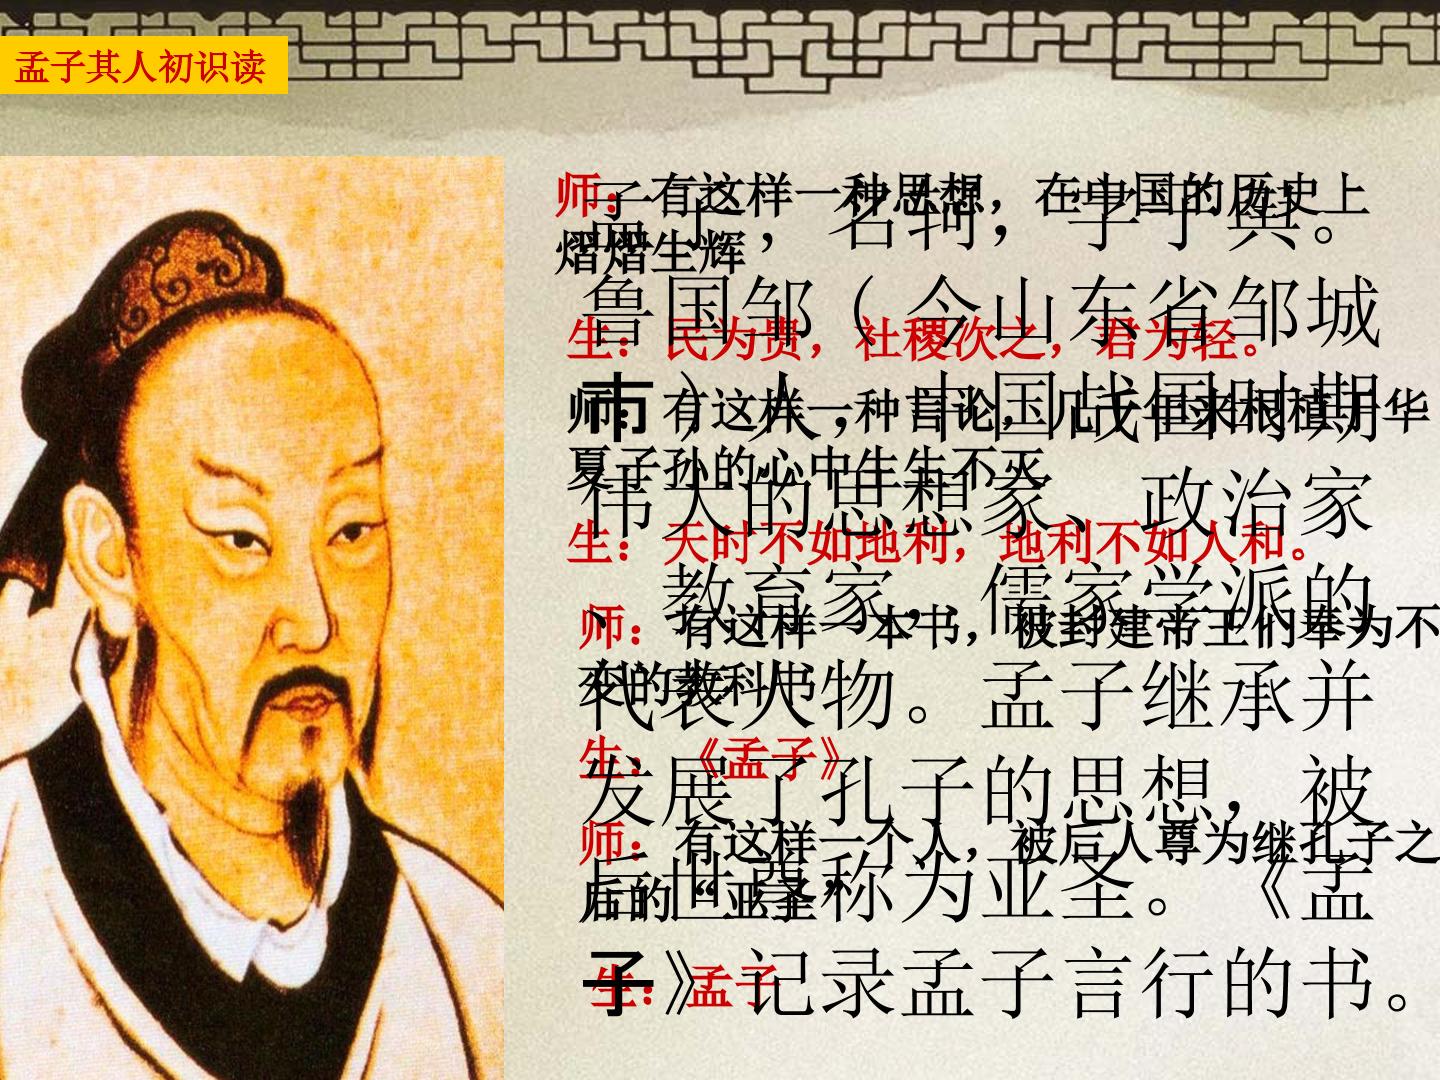 孟子其人初识读
师：有这样一种思想，在中国的历史上
熠熠生辉
生：民为贵，社稷次之，君为轻。
师：有这样一种言论，几千年来根植于华
夏子孙的心中生生不灭
生：天时不如地利，地利不如人和。
师：有这样一本书，被封建帝王们奉为不
变的教科书
生：《孟子》
师：有这样一个人，被后人尊为继孔子之
后的“亚圣”
生：孟子
孟子，名轲，字子舆。
鲁国邹（今山东省邹城
市）人，中国战国时期
伟大的思想家、政治家
、教育家，儒家学派的
代表人物。孟子继承并
发展了孔子的思想，被
后世尊称为亚圣。《孟
子》记录孟子言行的书。